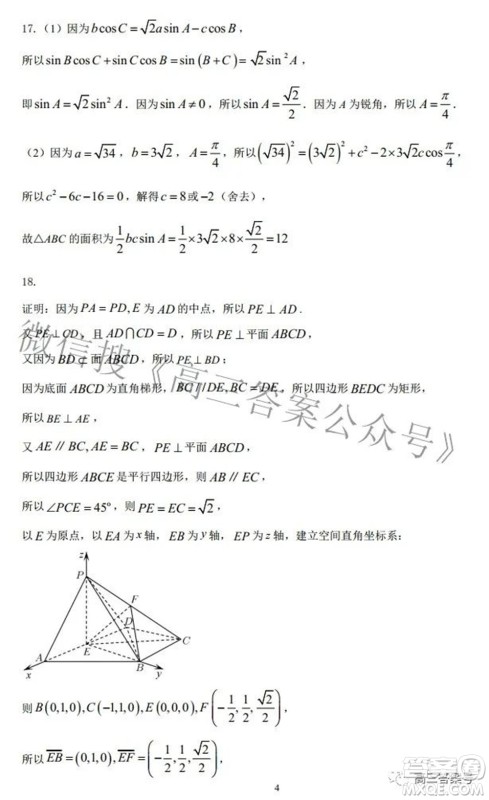 17.（1）因为 bcosC=√2asinA−ccosB，
所以 sinBcosC+sinCcosB=sin(B+C)=√2sin²A，
即 sinA=√2sin²A．因为 sinA≠0，所以 sinA=√2/2．因为 A 为锐角，所以 A=π/4．
（2）因为 a=√34，b=3√2，A=π/4，所以 (√34)²=(3√2)²+c²−2×3√2ccosπ/4，
所以 c²−6c−16=0，解得 c=8 或 −2（舍去），
故△ABC 的面积为 1/2bcsinA=1/2×3√2×8×√2/2=12
18.
证明：因为 PA=PD,E 为 AD 的中点，所以 PE⊥AD．
又 PE⊥CD，且 AD∩CD=D，所以 PE⊥平面 ABCD，
又因为 BD⊂面ABCD，所以 PE⊥BD；
因为底面 ABCD 为直角梯形，BC//DE,BC=DE，所以四边形 BEDC 为矩形，
所以 BE⊥AE，
又 AE//BC,AE=BC，PE⊥平面 ABCD，
所以四边形 ABCE 是平行四边形，则 AB//EC，
所以∠PCE=45°，则 PE=EC=√2，
以 E 为原点，以 EA 为 x 轴，EB 为 y 轴，EP 为 z 轴，建立空间直角坐标系：
z
P
F
D
E
C
A
B
x
y
则 B(0,1,0),C(−1,1,0),E(0,0,0),F(−1/2,1/2,√2/2)，
所以 EB=(0,1,0),EF=(−1/2,1/2,√2/2)，
4
微信搜《高三答案公众号》
高三答案号